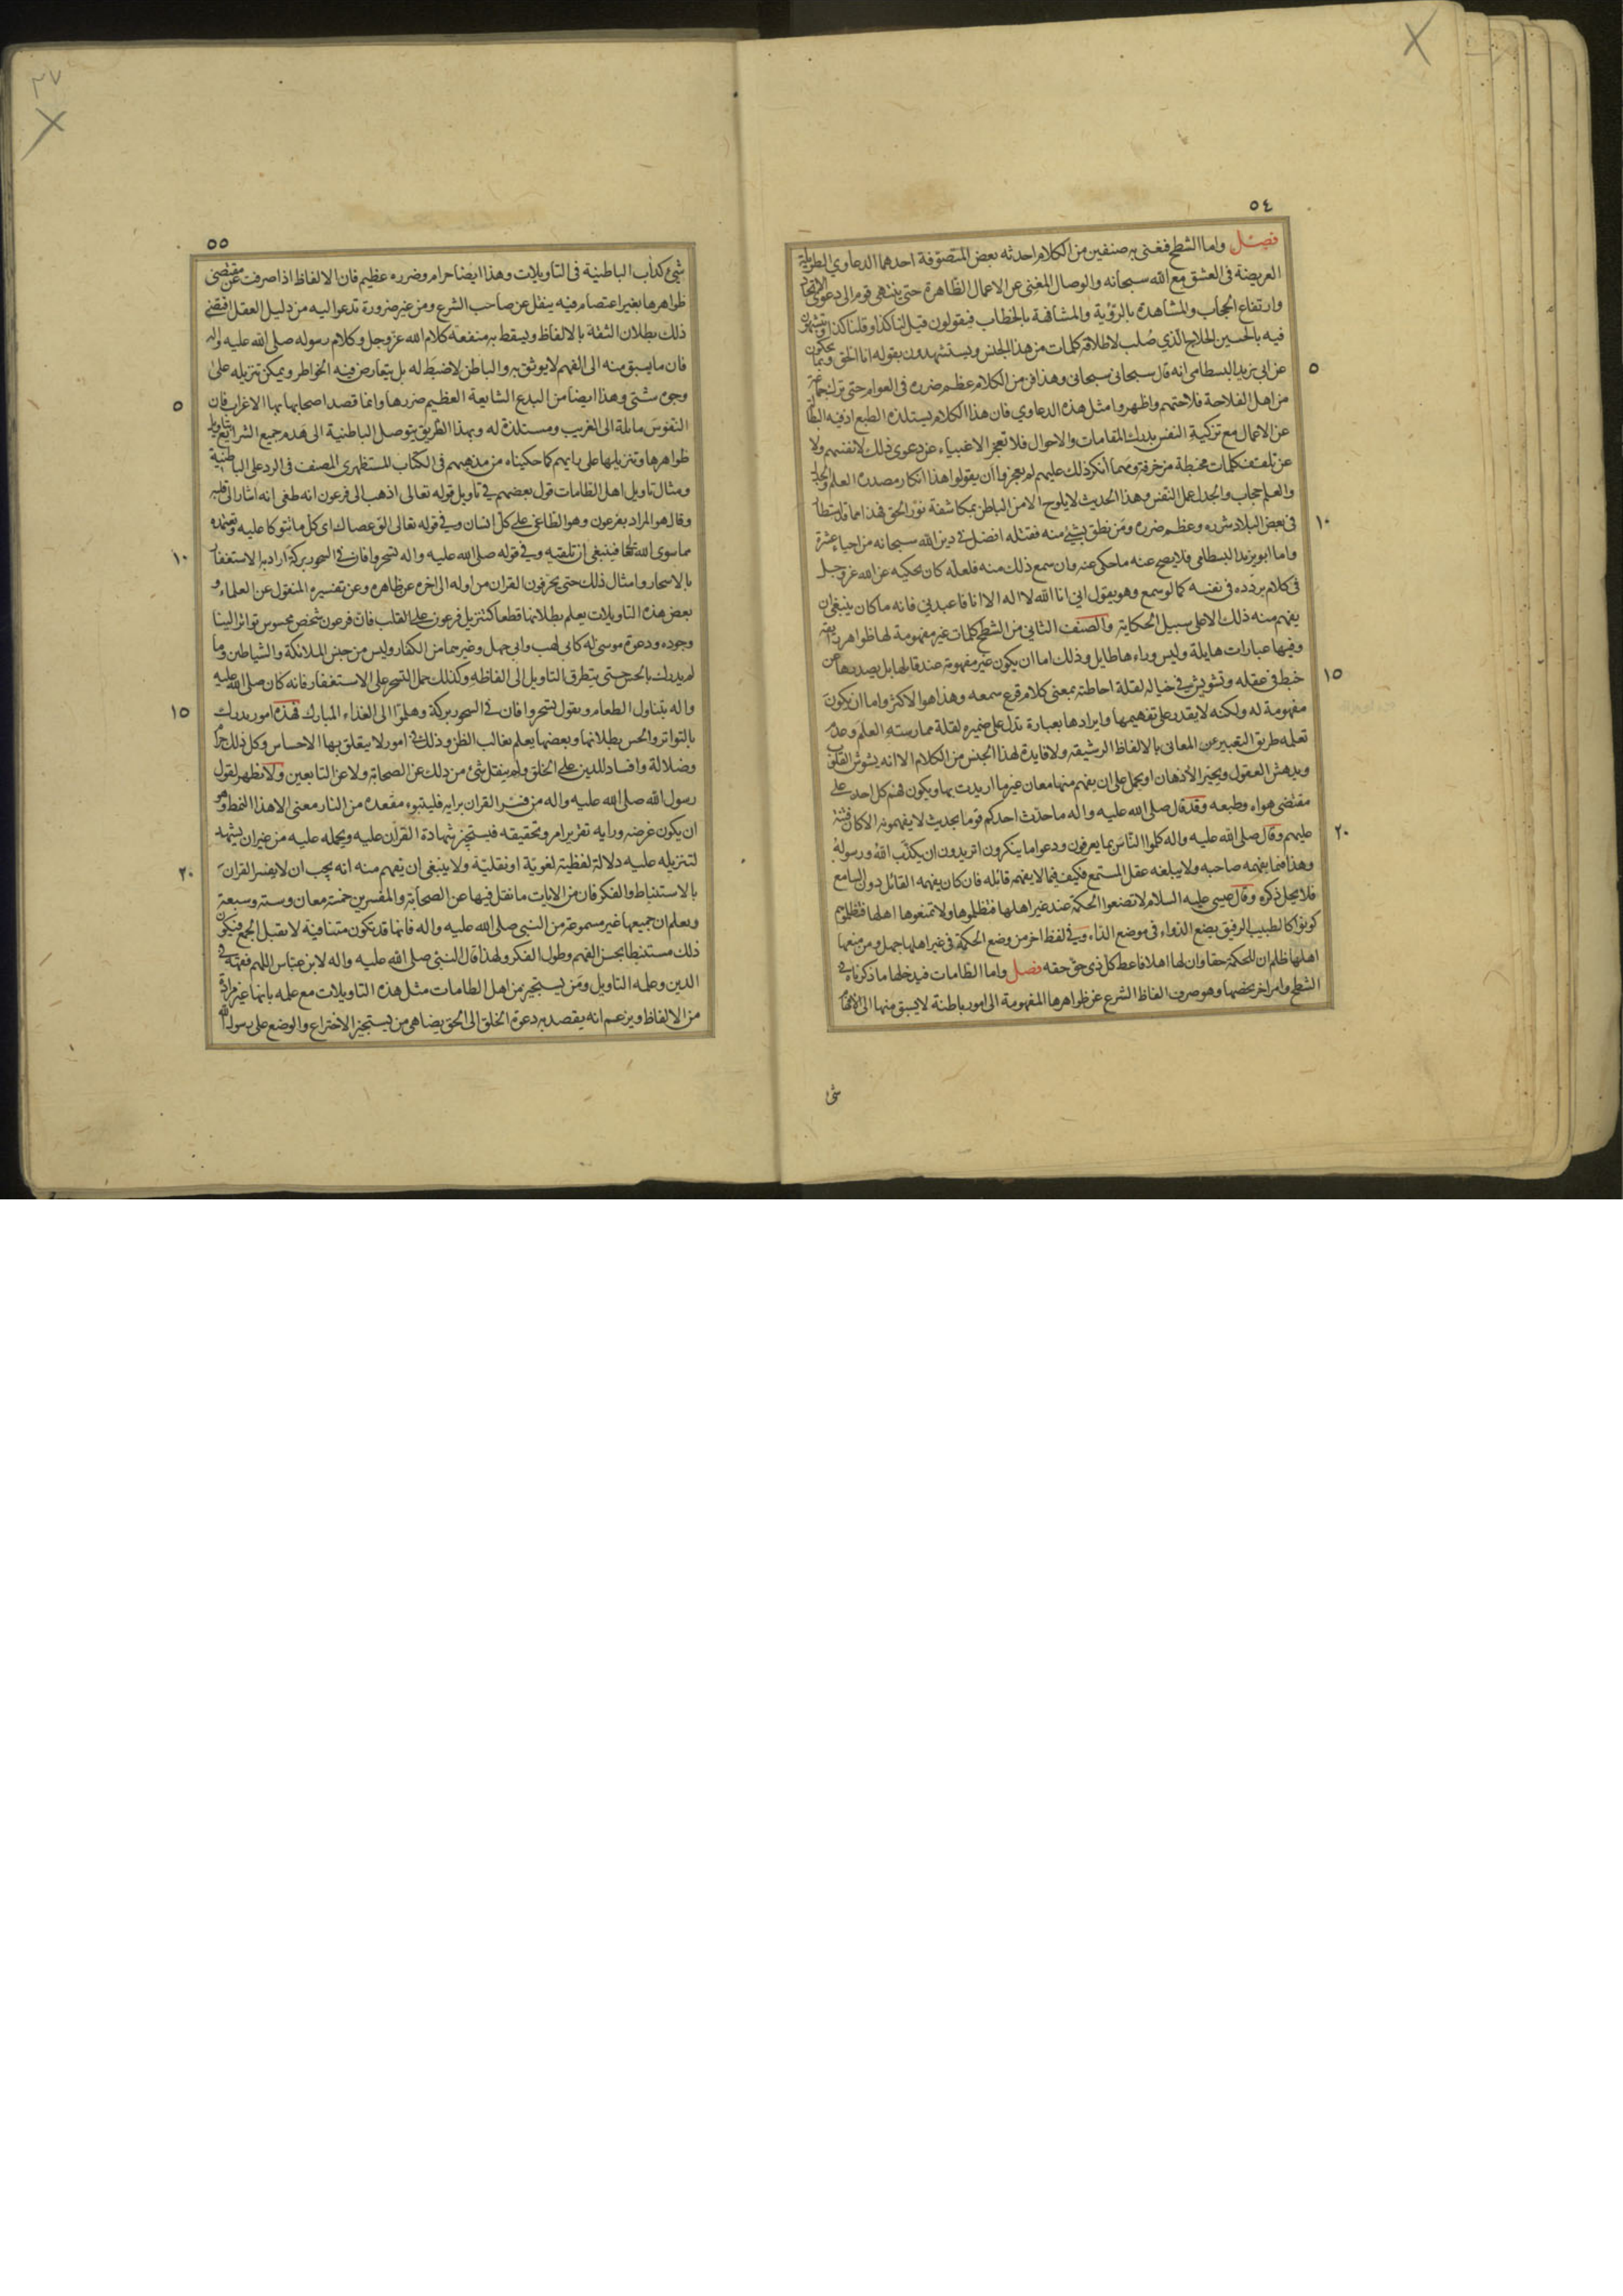 ٥٤
فصل واما الشطح فنعنى به صنفين من الكلام احدثه بعض المتصوفة احدهما الدعاوي الطويلة
العريضة فى العشق مع الله سبحانه والوصال المغنى عن الاعمال الظاهرة حتى ينتهى قوم الى دعوى الاتحاد
وارتفاع الحجاب والمشاهدة بالرؤية والمشافهة بالخطاب فيقولون قيل لنا كذا وقلنا كذا ويتشبهون
فيه بالحسين الحلاج الذي صلب لاطلاقه كلمات من هذا الجنس ويستشهدون بقوله انا الحق وبما يحكون
عن ابى يزيد البسطامى انه قال سبحانى سبحانى وهذا فن من الكلام عظم ضرره فى العوام حتى ترك جماعة
٥
من اهل الفلاحة فلاحتهم واظهروا مثل هذه الدعاوي فان هذا الكلام يستلذه الطبع اذ فيه البطالة
عن الاعمال مع تزكية النفس بدرك المقامات والاحوال فلا تعجز الاغبياء عن دعوى ذلك لانفسهم ولا
عن تلقف كلمات مخبطة مزخرفة ومهما انكر ذلك عليهم لم يعجزوا أن يقولوا هذا انكار مصدره العلم والجدل
والعلم حجاب والجدل عمل النفس وهذا الحديث لا يلوح الا من الباطن بمكاشفة نور الحق فهذا مما قد استطار
فى بعض البلاد شره وعظم ضرره ومن نطق بشيء منه فقتله افضل فى دين الله سبحانه من احياء عشرة
١٠
واما ابو يزيد البسطامى فلا يصح عنه ما حكى عنه وان سمع ذلك منه فلعله كان يحكيه عن الله عز وجل
فى كلام يردده فى نفسه كما لو سمع وهو يقول اني انا الله لا اله الا انا فاعبدني فانه ما كان ينبغى ان
يفهم منه ذلك الا على سبيل الحكاية والصنف الثانى من الشطح كلمات غير مفهومة لها ظواهر رائقة
وفيها عبارات هايلة وليس وراءها طايل وذلك اما ان يكون غير مفهومة عند قائلها بل يصدرها عن
خبط فى عقله وتشويش فى خياله لقلة احاطته بمعنى كلام قرع سمعه وهذا هو الاكثر واما ان يكون
١٥
مفهومة له ولكنه لا يقدر على تفهيمها وايرادها بعبارة تدل على ضميره لقلة ممارسته العلم وعدم
تعلمه طريق التعبير عن المعانى بالالفاظ الرشيقة ولا فايدة لهذا الجنس من الكلام الا انه يشوش القلوب
ويدهش العقول ويحير الاذهان او يحمل على ان يفهم منها معان غير ما اريدت بها ويكون فهم كل احد على
مقتضى هواه وطبعه وقد قال صلى الله عليه واله ما حدث احدكم قوما بحديث لا يفهمونه الا كان فتنة
عليهم وقال صلى الله عليه واله كلموا الناس بما يعرفون ودعوا ما ينكرون اتريدون ان يكذب الله ورسوله
٢٠
وهذا فيما يفهمه صاحبه ولا يبلغه عقل المستمع فكيف فيما لا يفهمه قائله فان كان يفهمه القائل دون السامع
فلا يحل ذكره وقال عيسى عليه السلام لا تضعوا الحكمة عند غير اهلها فتظلموها ولا تمنعوها اهلها فتظلموهم
كونوا كالطبيب الرفيق يضع الدواء فى موضع الداء وفى لفظ اخر من وضع الحكمة فى غير اهلها جهل ومن منعها
اهلها ظلم ان للحكمة حقا وان لها اهلا فاعط كل ذى حق حقه فصل واما الطامات فيدخلها ما ذكرناه فى
الشطح وامر اخر يخصها وهو صرف الفاظ الشرع عن ظواهرها المفهومة الى امور باطنة لا يسبق منها الى الافهام
شئ
٣٧
٥٥
شئ كداب الباطنية فى التاويلات وهذا ايضا حرام وضرره عظيم فان الالفاظ اذا صرفت عن مقتضى
ظواهرها بغير اعتصام فيه بنقل عن صاحب الشرع ومن غير ضرورة تدعو اليه من دليل العقل اقتضى
ذلك بطلان الثقة بالالفاظ ويسقط به منفعة كلام الله عز وجل وكلام رسوله صلى الله عليه واله
فان ما يسبق منه الى الفهم لا يوثق به والباطن لا ضبط له بل يتعارض فيه الخواطر ويمكن تنزيله على
وجوه شتى وهذا ايضا من البدع الشايعة العظيم ضررها وانما قصد اصحابها بها الاغراب فان
٥
النفوس مائلة الى الغريب ومستلذة له وبهذا الطريق يتوصل الباطنية الى هدم جميع الشرايع بتاويل
ظواهرها وتنزيلها على رايهم كما حكيناه من مذهبهم فى الكتاب المستظهرى المصنف فى الرد على الباطنية
ومثال تاويل اهل الطامات قول بعضهم فى تاويل قوله تعالى اذهب الى فرعون انه طغى انه اشار الى قلبه
وقال هو المراد بفرعون وهو الطاغى على كل انسان وفى قوله تعالى الق عصاك اى كل ما يتوكا عليه ويعتمده
مما سوى الله فينبغى ان تلقيه وفى قوله صلى الله عليه واله تسحروا فان فى السحور بركة اراد به الاستغفار
١٠
بالاسحار وامثال ذلك حتى يحرفون القران من اوله الى اخره عن ظاهره وعن تفسيره المنقول عن العلماء و
بعض هذه التاويلات يعلم بطلانها قطعا كتنزيل فرعون على القلب فان فرعون شخص محسوس تواتر الينا
وجوده ودعوة موسى له كابى لهب وابى جهل وغيرهما من الكفار وليس من جنس الملائكة والشياطين وما
لم يدرك بالحس حتى يتطرق التاويل الى الفاظه وكذلك حمل التسحر على الاستغفار فانه كان صلى الله عليه
واله يتناول الطعام ويقول تسحروا فان فى السحور بركة وهلموا الى الغذاء المبارك فهذه امور يدرك
١٥
بالتواتر والحس بطلانها وبعضها يعلم بغالب الظن وذلك فى امور لا يتعلق بها الاحساس وكل ذلك حرام
وضلالة وافساد للدين على الخلق ولم ينقل شئ من ذلك عن الصحابة ولا عن التابعين ولا نظهر لقول
رسول الله صلى الله عليه واله من فسر القران برايه فليتبوء مقعده من النار معنى الا هذا النمط وهو
ان يكون غرضه ورايه تقرير امر وتحقيقه فيستجر شهادة القرآن عليه ويحمله عليه من غير ان يشهد
لتنزيله عليه دلالة لفظية لغوية او نقلية ولا ينبغى ان يفهم منه انه يجب ان لا يفسر القران
٢٠
بالاستنباط والفكر فان من الايات ما نقل فيها عن الصحابة والمفسرين خمسة معان وستة وسبعة
ويعلم ان جميعها غير مسموعة من النبى صلى الله عليه واله فانها قد تكون متنافية لا يقبل الجمع فيكون
ذلك مستنبطا بحسن الفهم وطول الفكر ولهذا قال النبى صلى الله عليه واله لابن عباس اللهم فقهه فى
الدين وعلمه التاويل ومن يستجيز من اهل الطامات مثل هذه التاويلات مع علمه بانها غير مرادة
من الالفاظ ويزعم انه يقصد به دعوة الخلق الى الحق يضاهى من يستجيز الاختراع والوضع على رسول الله